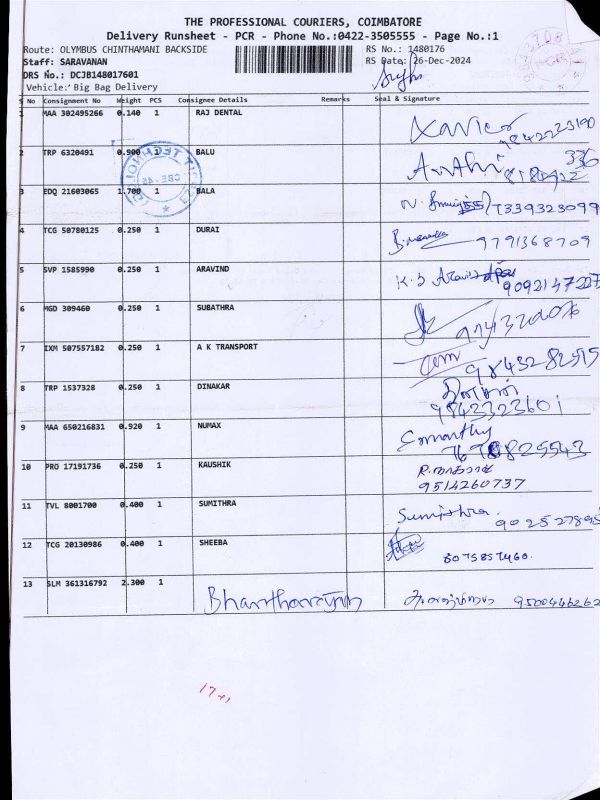 THE PROFESSIONAL COURIERS, COIMBATORE
Delivery Runsheet - PCR - Phone No.:0422-3505555 - Page No.:1
Route: OLYMBUS CHINTHAMANI BACKSIDE RS No.: 1480176
Staff: SARAVANAN RS Date: 26-Dec-2024
DRS No.: DCJB148017601
Vehicle: Big Bag Delivery
S No Consignment No Weight PCS Consignee Details Remarks Seal & Signature
1 MAA 302495266 0.140 1 RAJ DENTAL Xavier
9842223190
2 TRP 6320491 0.900 1 BALU
3 EDQ 21603065 1.700 1 BALA 7339323099
4 TCG 50780125 0.250 1 DURAI 9791368709
5 SVP 1585990 0.250 1 ARAVIND K.S Aravind
9092147227
6 MGD 309460 0.250 1 SUBATHRA
7 IXM 507557182 0.250 1 A K TRANSPORT
9843282515
8 TRP 1537328 0.250 1 DINAKAR
9843323601
9 MAA 650216831 0.920 1 NUMAX
10 PRO 17191736 0.250 1 KAUSHIK
9514260737
11 TVL 8001700 0.400 1 SUMITHRA Sumithra
12 TCG 20130986 0.400 1 SHEEBA 8075857460
13 SLM 361316792 2.300 1 9500446262